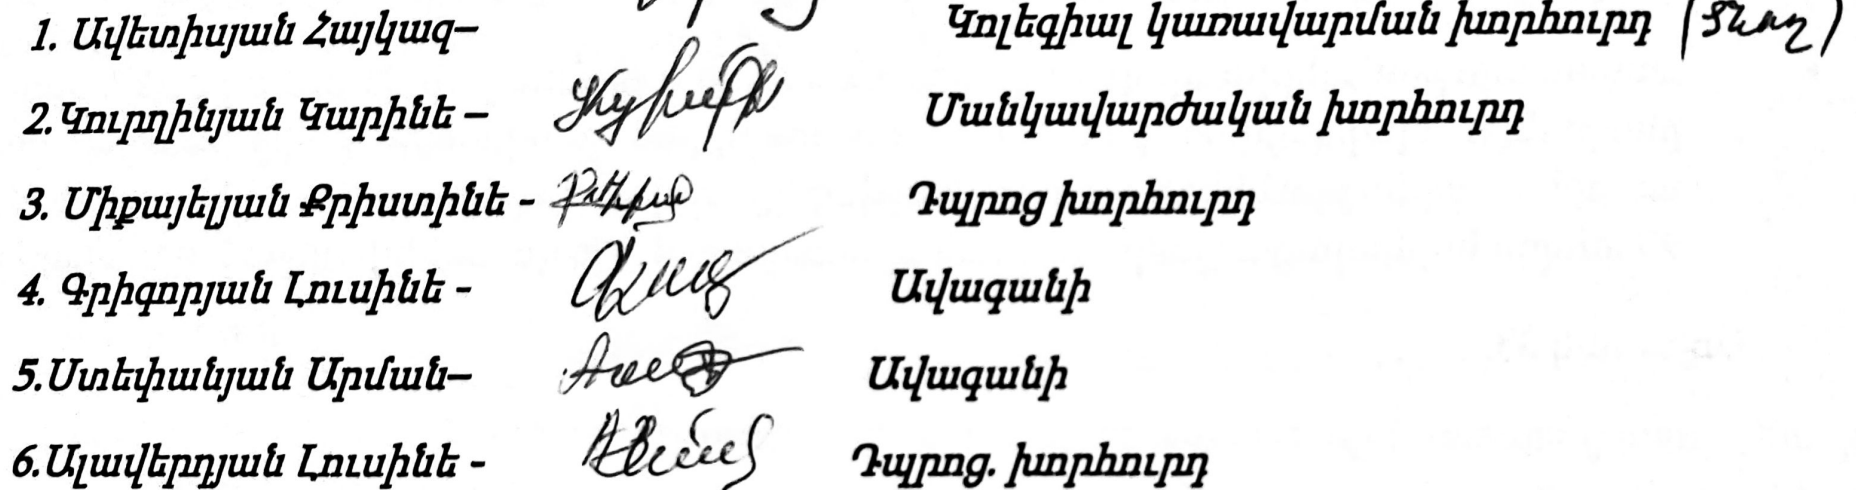 1. Ավետիսյան Հայկազ– Կոլեգիալ կառավարման խորհուրդ (ծնող)
2.Կուրղինյան Կարինե – Մանկավարժական խորհուրդ
3. Միքայելյան Քրիստինե - Դպրոց խորհուրդ
4. Գրիգորյան Լուսինե - Ավագանի
5.Ստեփանյան Արման– Ավագանի
6.Ալավերդյան Լուսինե - Դպրոց. խորհուրդ